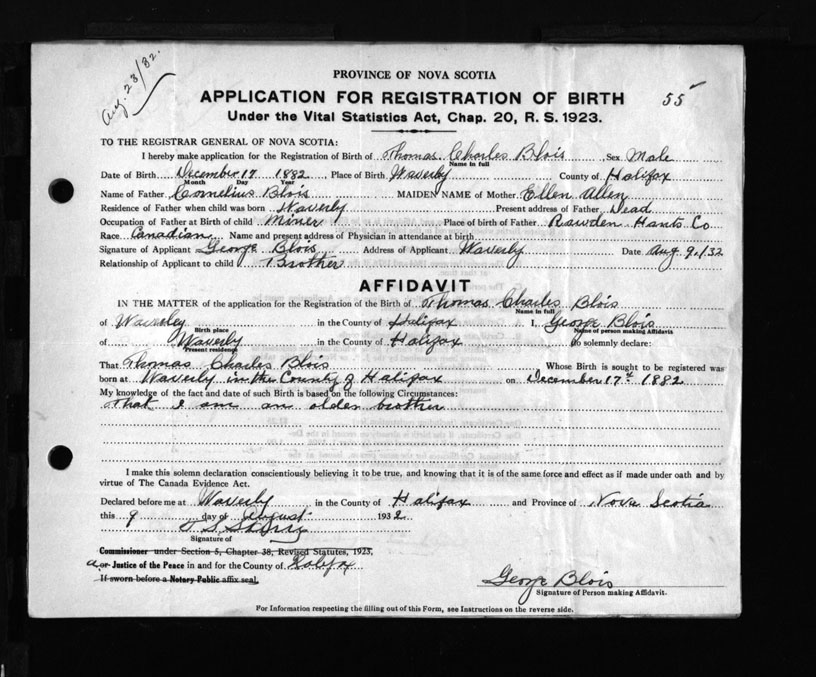 Aug. 23/32.
PROVINCE OF NOVA SCOTIA
APPLICATION FOR REGISTRATION OF BIRTH 55
Under the Vital Statistics Act, Chap. 20, R. S. 1923.
TO THE REGISTRAR GENERAL OF NOVA SCOTIA:
I hereby make application for the Registration of Birth of Thomas Charles Blois Sex Male
Name in full
Date of Birth December 17 1882 Place of Birth Waverly County of Halifax
Month Day Year
Name of Father Cornelius Blois MAIDEN NAME of Mother Ellen Allen
Residence of Father when child was born Waverly Present address of Father Dead
Occupation of Father at Birth of child Miner Place of birth of Father Rawden Hants Co
Race Canadian Name and present address of Physician in attendance at birth
Signature of Applicant George Blois Address of Applicant Waverly Date Aug 9,/32
Relationship of Applicant to child Brother
AFFIDAVIT
IN THE MATTER of the application for the Registration of the Birth of Thomas Charles Blois
Name in full
of Waverley in the County of Halifax I, George Blois
Birth place Name of person making Affidavit
of Waverly in the County of Halifax do solemnly declare:
Present residence
That Thomas Charles Blois Whose Birth is sought to be registered was
born at Waverly in the County of Halifax on December 17th 1882
My knowledge of the fact and date of such Birth is based on the following Circumstances:
That I am an older brother
I make this solemn declaration conscientiously believing it to be true, and knowing that it is of the same force and effect as if made under oath and by
virtue of The Canada Evidence Act.
Declared before me at Waverly in the County of Halifax and Province of Nova Scotia
this 9 day of August 1932
Signature of
Commissioner under Section 5, Chapter 38, Revised Statutes, 1923,
a or Justice of the Peace in and for the County of Halifax
If sworn before a Notary Public affix seal.
George Blois
Signature of Person making Affidavit.
For Information respecting the filling out of this Form, see Instructions on the reverse side.